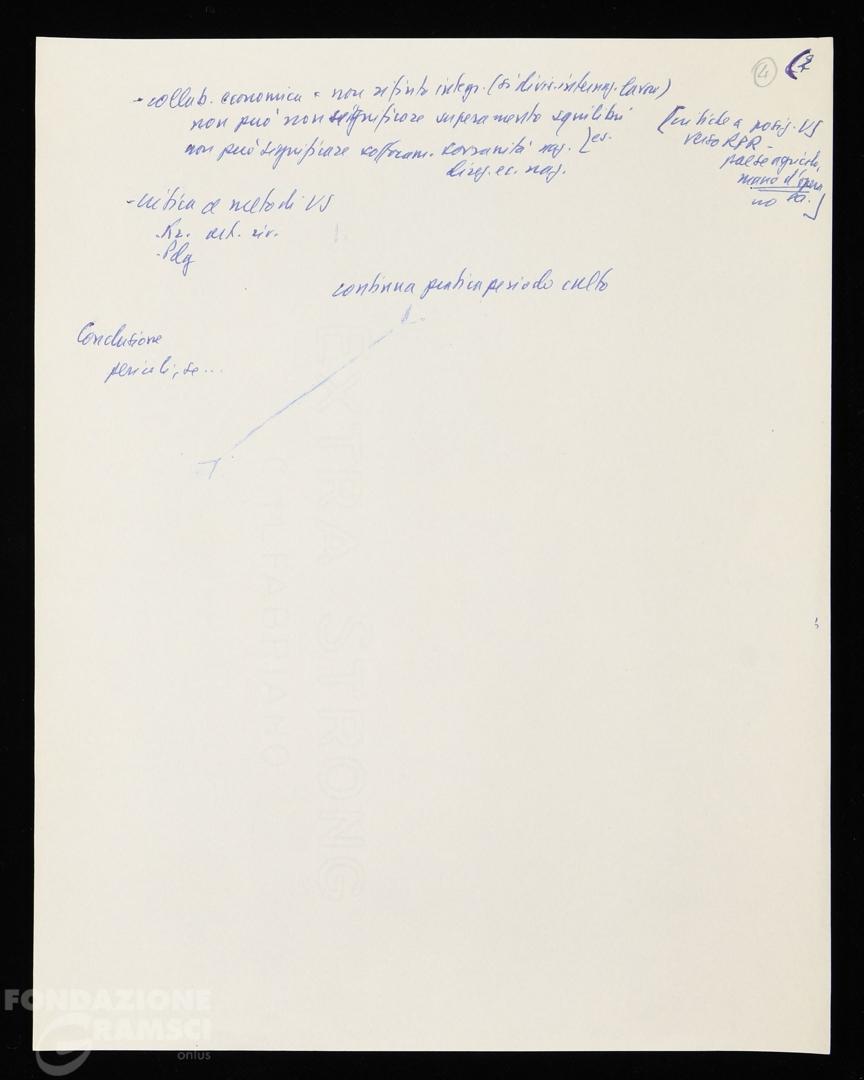 4 2
- collab. economica = non rifiuto integr. (sì divis. internaz. lavoro)
non può non significare superamento squilibri
non può significare soffocam. sovranità naz. [es.
direz. ec. naz.
[critiche a posiz. VS
verso RPR -
paese agricolo,
mano d'opera
no
- critica a metodi VS
- Kz.
- Pdg
continua pratica periodo culto
Conclusione
pericoli, se...
EXTRA STRONG
FABRIANO
FONDAZIONE
GRAMSCI
onlus